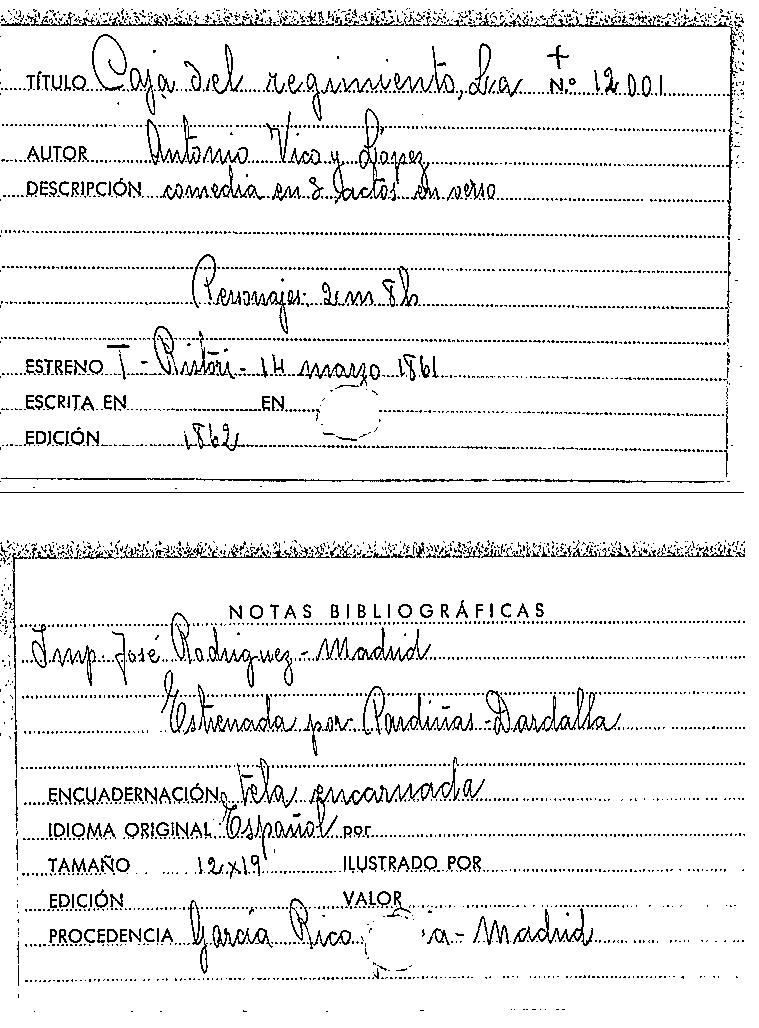 TÍTULO Caja del regimiento, La N.º 12001
AUTOR Antonio Vico y López
DESCRIPCIÓN comedia en 3 actos en verso
Personajes: 2 m 8 h
ESTRENO T - Ristori - 14 marzo 1861
ESCRITA EN EN
EDICIÓN 1862
NOTAS BIBLIOGRÁFICAS
Imp. José Rodriguez - Madrid
Estrenada por: Pardiñas - Dardalla
ENCUADERNACIÓN tela encarnada
IDIOMA ORIGINAL Español por
TAMAÑO 12x19 ILUSTRADO POR
EDICIÓN VALOR
PROCEDENCIA García Rico - Madrid